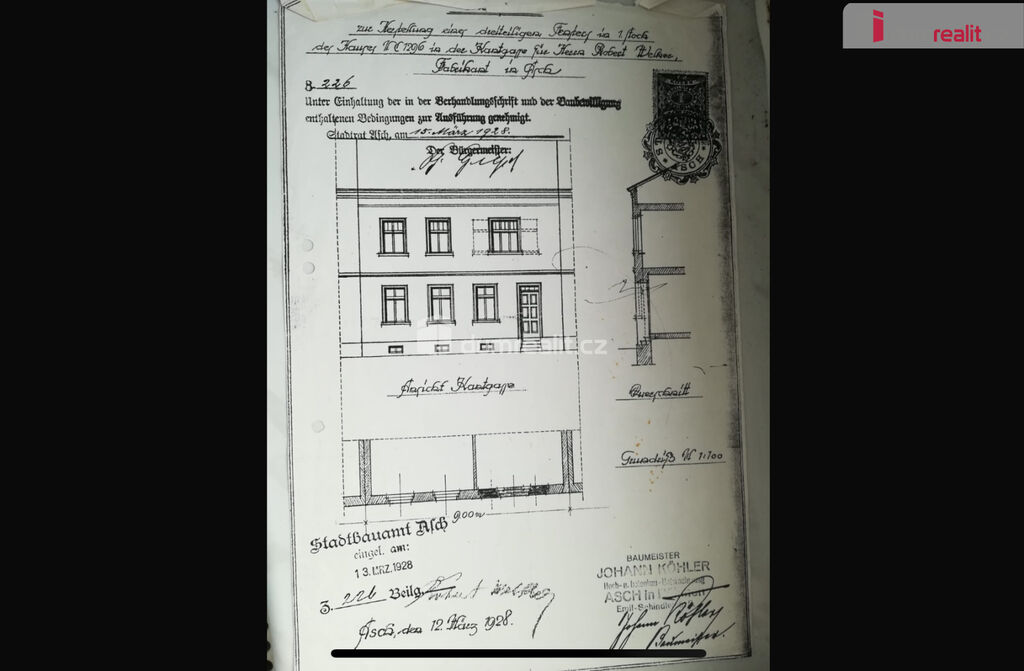 realit
zur Herstellung eines dreiteiligen Fensters in 1. Stock
des Hauses N C 1206 in der Kantgasse für Herrn Robert
Fabrikant in Asch
3. 226
Unter Einhaltung der in der Verhandlungsschrift und der Baubewilligung
enthaltenen Bedingungen zur Ausführung genehmigt.
Stadtrat Asch, am 15. März 1928.
Der Bürgermeister:
ASCH
domrealit.cz
Ansicht Kantgasse
Querschnitt
Grundriß M 1:100
9.00 m
Stadtbauamt Asch
eingel. am:
13. MRZ. 1928
3. 226 Beilg. Robert
Asch, den 12. März 1928.
BAUMEISTER
JOHANN KÖHLER
ASCH in
Johann Köhler
Baumeister.